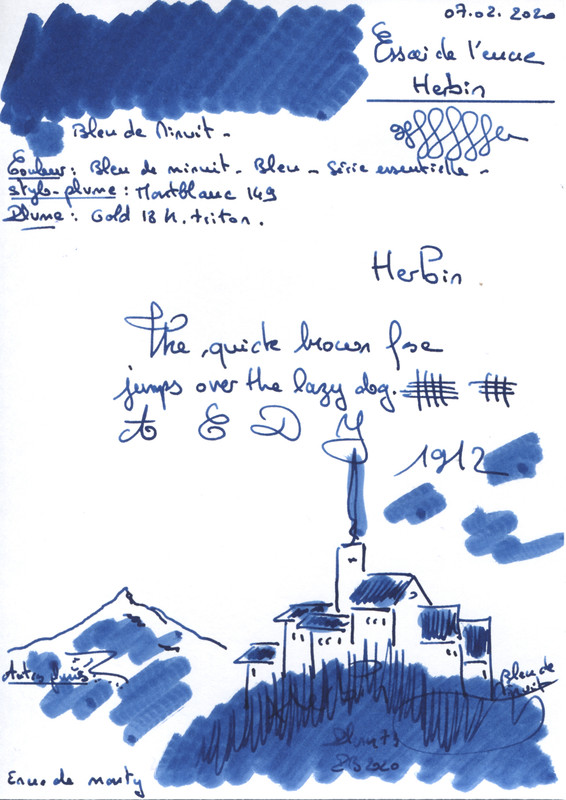 07.02.2020
Essai de l'encre
Herbin
Bleu de Minuit -
Couleur: Bleu de minuit - Bleu - Série essentielle -
stylo-plume: Montblanc 149
Plume: Gold 18 K. triton.
Herbin
The quick brown fox
jumps over the lazy dog.
A E D Y
1912
Bleu de
minuit
2020
Encre de